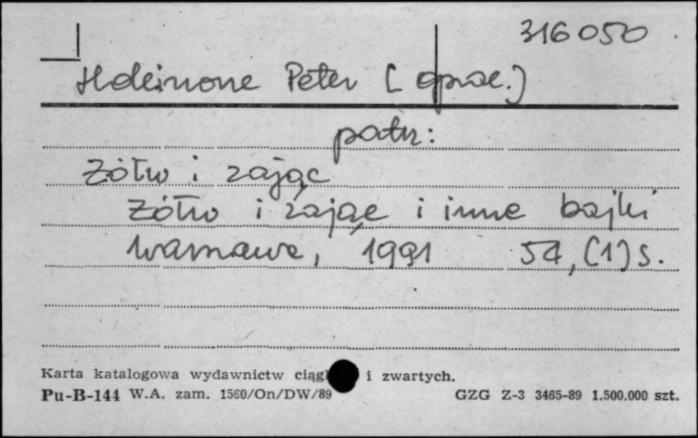 316050
Peter [oprac.]
patrz:
Żółw i zając
Żółw i zając i inne bajki
Warszawa, 1991 54, (1) s.
Karta katalogowa wydawnictw i zwartych.
Pu-B-144 W.A. zam. 1560/On/DW/89 GZG Z-3 3465-89 1.500.000 szt.